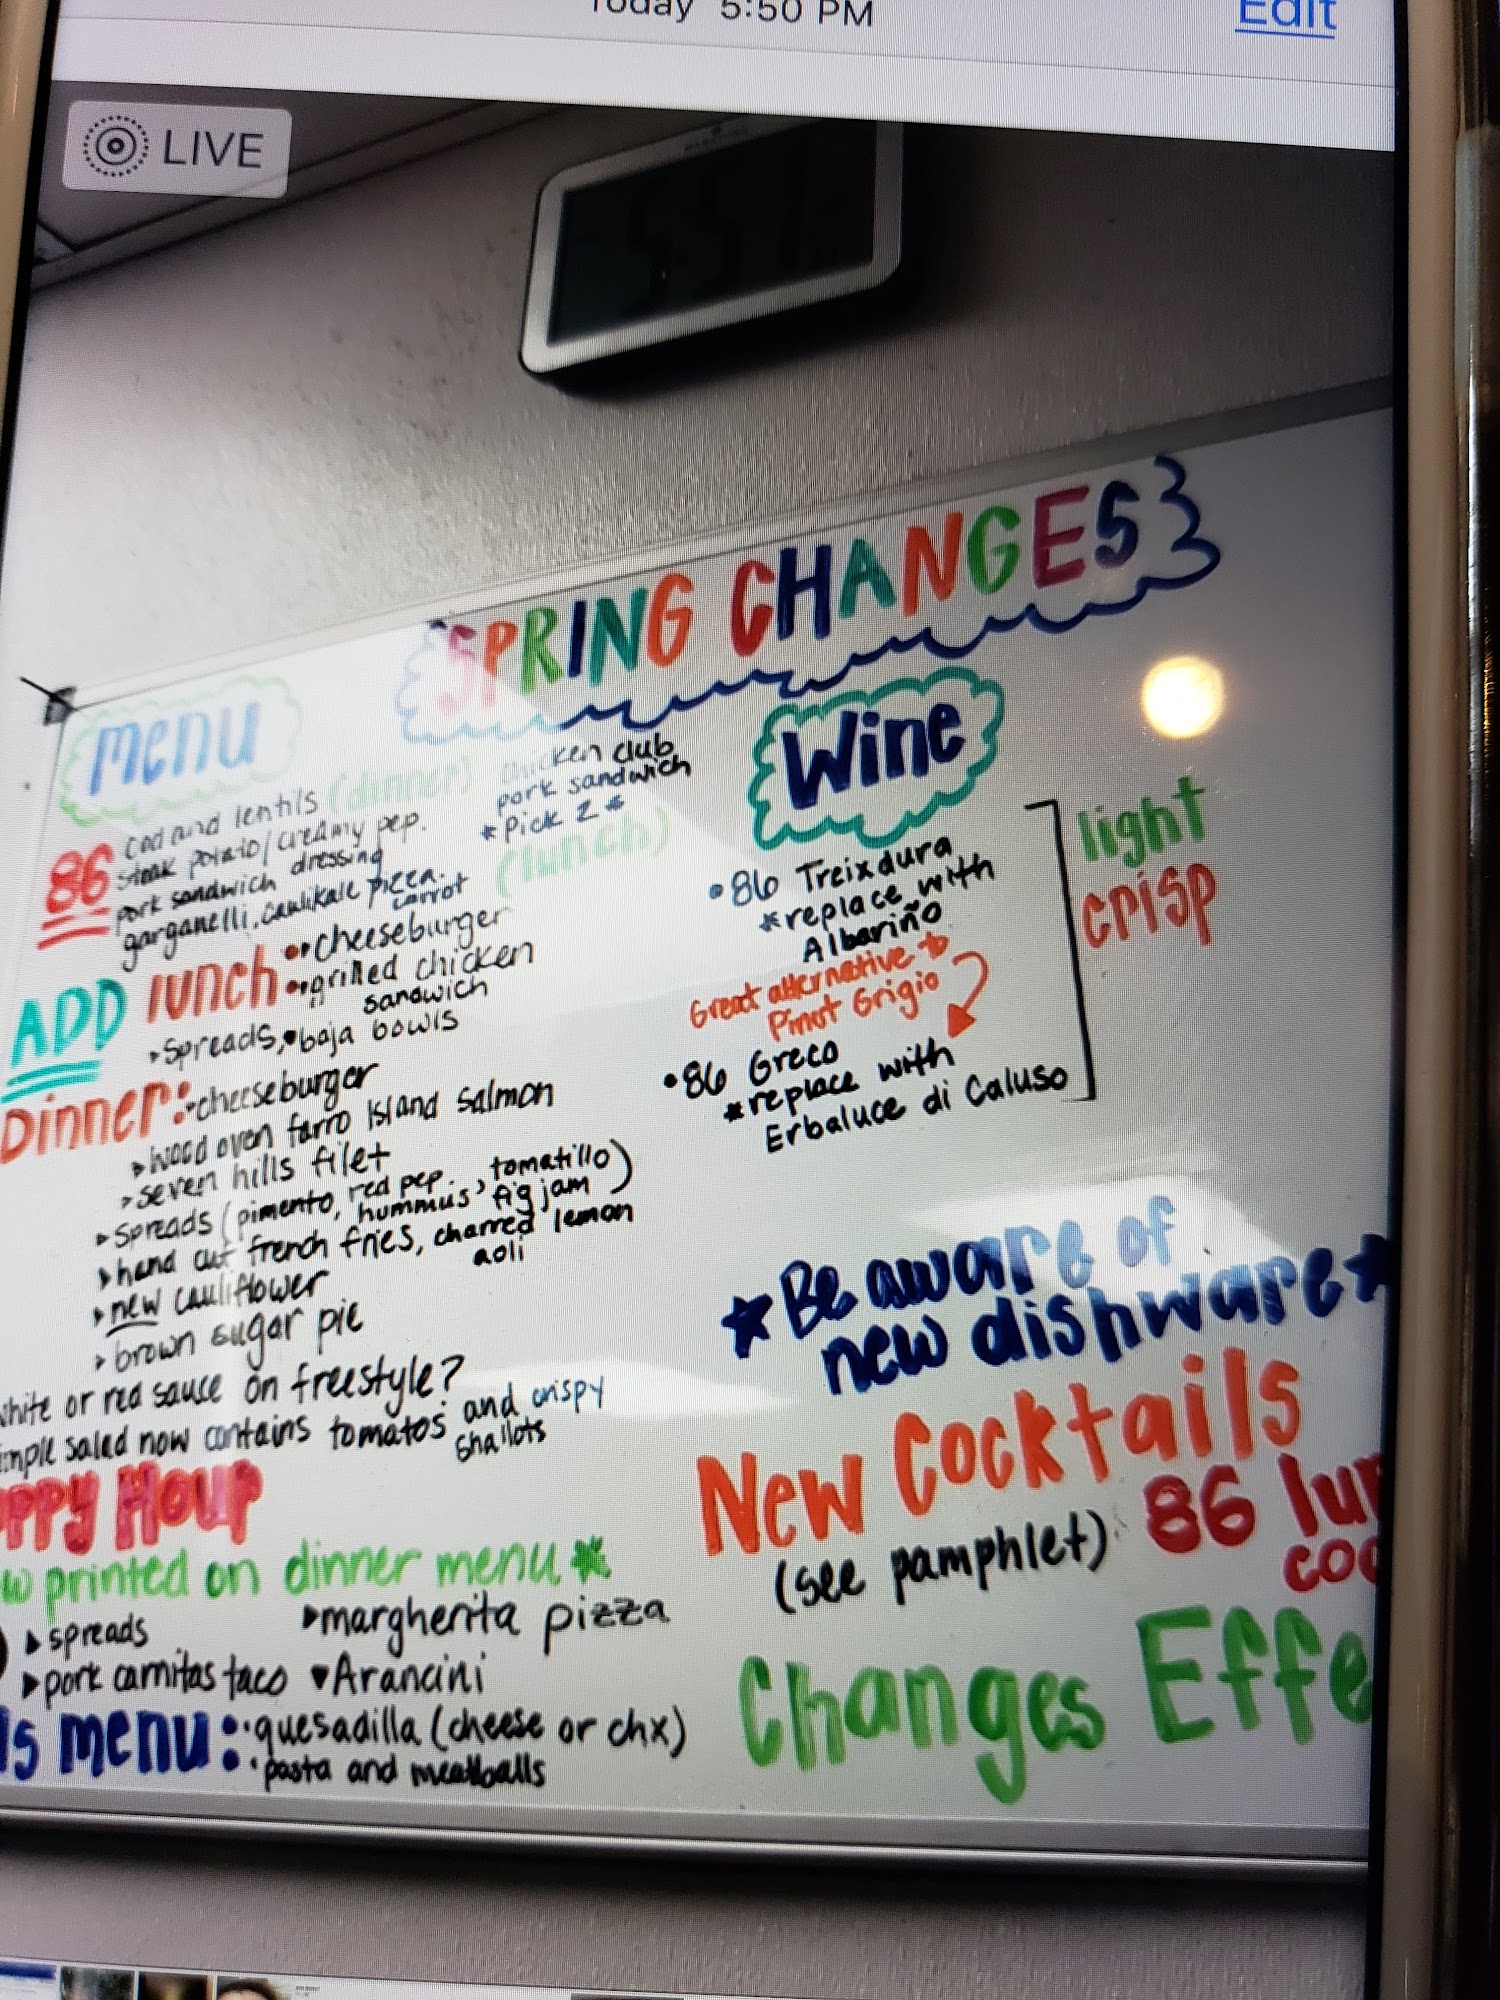 Today 5:50 PM
Edit
LIVE
SPRING CHANGES
menu
86
cod and lentils (dinner)
steak potato/creamy pep.
pork sandwich dressing
garganelli, caulikale pizza.
carrot
chicken club
pork sandwich
*Pick 2*
(lunch)
ADD lunch
•cheeseburger
•grilled chicken
sandwich
spreads, •baja bowls
Dinner: cheeseburger
wood oven farro island salmon
seven hills filet
spreads (pimento, red pep. tomatillo)
hummus, fig jam
hand cut french fries, charred lemon
aoli
new cauliflower
brown sugar pie
white or red sauce on freestyle?
imple salad now contains tomatos and crispy
shallots
appy Hour
w printed on dinner menu*
spreads
margherita pizza
pork carnitas taco
Arancini
ds menu: •quesadilla (cheese or chx)
•pasta and meatballs
Wine
•86 Treixdura
*replace with
Albariño
Great alternative to
Pinot Grigio
•86 Greco
*replace with
Erbaluce di Caluso
light
crisp
★Be aware of
new dishware★
New Cocktails
(see pamphlet)
86 lun
coc
Changes Effe